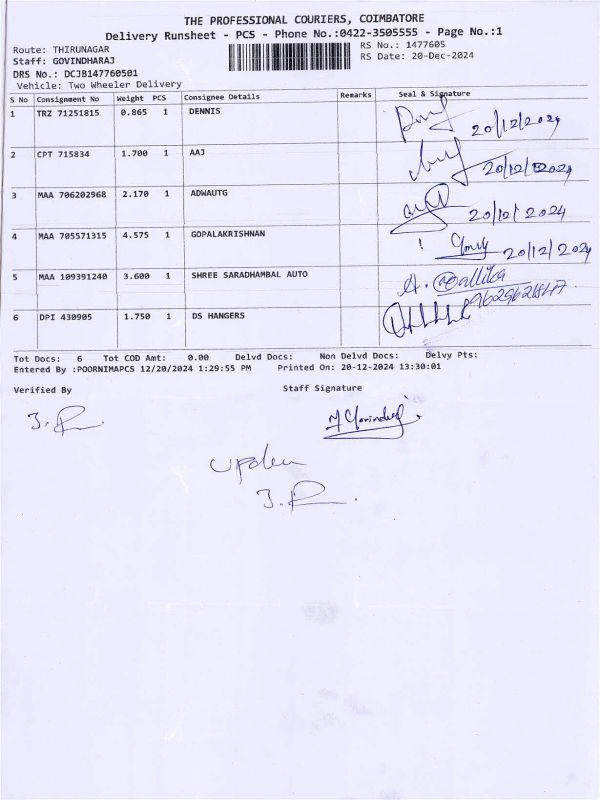 THE PROFESSIONAL COURIERS, COIMBATORE
Delivery Runsheet - PCS - Phone No.:0422-3505555 - Page No.:1
Route: THIRUNAGAR RS No.: 1477605
Staff: GOVINDHARAJ RS Date: 20-Dec-2024
DRS No.: DCJB147760501
Vehicle: Two Wheeler Delivery
S No Consignment No Weight PCS Consignee Details Remarks Seal & Signature
1 TRZ 71251815 0.865 1 DENNIS
20/12/2024
2 CPT 715834 1.700 1 AAJ
20/12/2024
3 MAA 706202968 2.170 1 ADWAUTG
20/12/2024
4 MAA 705571315 4.575 1 GOPALAKRISHNAN
20/12/2024
5 MAA 109391240 3.600 1 SHREE SARADHAMBAL AUTO
6 DPI 430905 1.750 1 DS HANGERS
Tot Docs: 6 Tot COD Amt: 0.00 Delvd Docs: Non Delvd Docs: Delvy Pts:
Entered By :POORNIMAPCS 12/20/2024 1:29:55 PM Printed On: 20-12-2024 13:30:01
Verified By Staff Signature